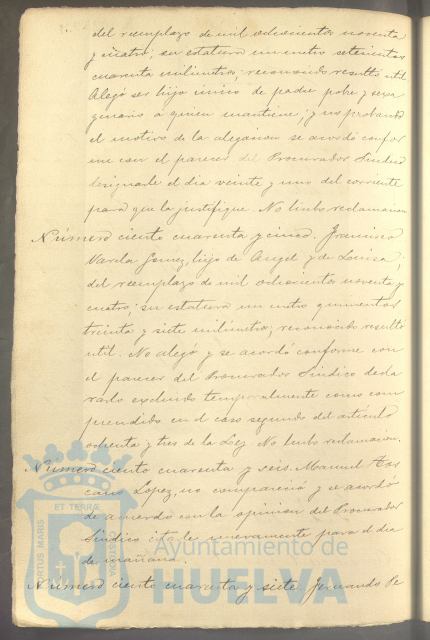 del reemplazo de mil ochocientos noventa
y cuatro; su estatura un metro setecientos
cuarenta milimetros; reconocido resultó util
Alegó ser hijo único de padre pobre y sexa
genario á quien mantiene; y no probando
el motivo de la alegacion se acordó confor
me con el parecer del Procurador Sindico
designarle el dia veinte y uno del corriente
para que la justifique. No hubo reclamacion
Número ciento cuarenta y cinco. Francisco
Varela Gomez, hijo de Angel y de Luisa;
del reemplazo de mil ochocientos noventa y
cuatro; su estatura un metro quinientos
treinta y siete milimetros; reconocido resultó
util. No alegó y se acordó conforme con
el parecer del Procurador Sindico decla
rarlo excluido temporalmente como com
prendido en el caso segundo del artículo
ochenta y tres de la Ley. No hubo reclamacion.
Número ciento cuarenta y seis. Manuel Tos
cano Lopez, no compareció y se acordó
de acuerdo con la opinion del Procurador
Sindico citarle nuevamente para el dia
de mañana.
Número ciento cuarenta y siete. Fernando Pe
ET TERRÆ
PORTUS MARIS
Ayuntamiento de
HUELVA